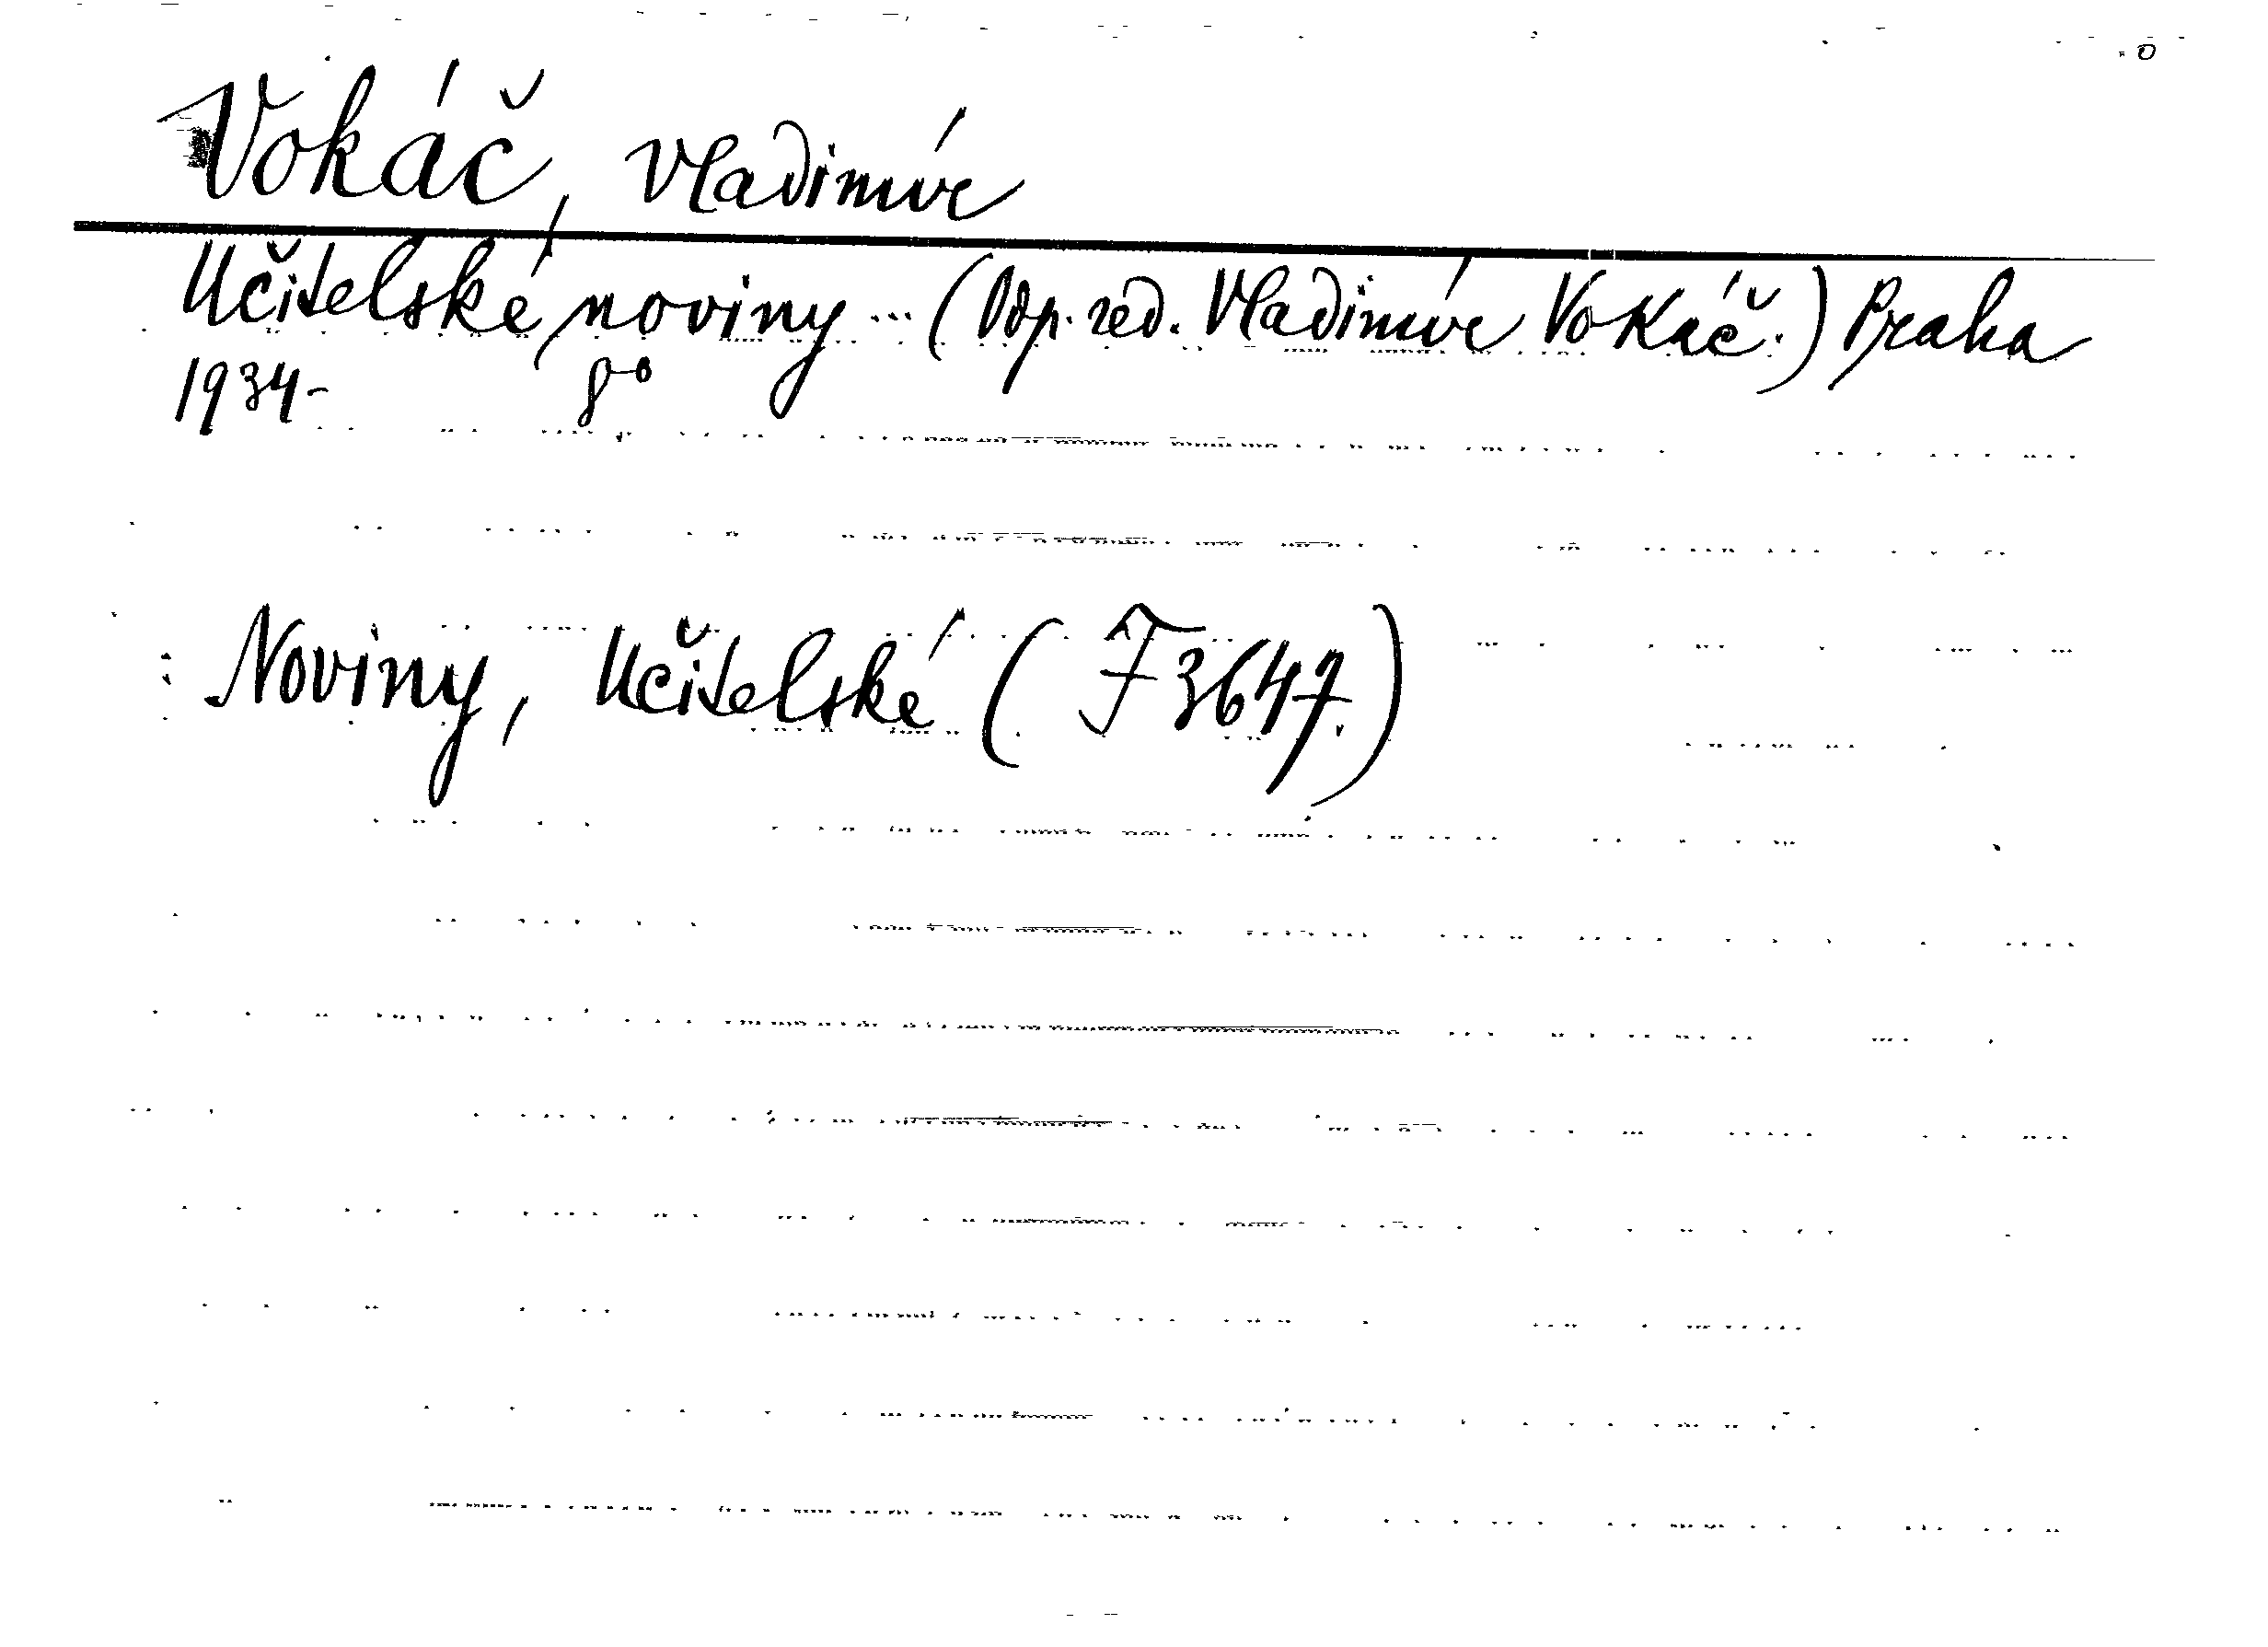 Vokáč, Vladimír
Učitelské noviny ... (Odp. red. Vladimír Vokáč.) Praha
1934- 8°
: Noviny, Učitelské (F 3647.)